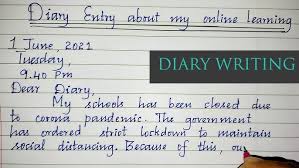 Diary Entry about my online learning
1 June, 2021
Tuesday,
9.40 Pm
DIARY WRITING
Dear Diary,
My schools has been closed due
to corona pandemic. The government
has ordered strict lockdown to maintain
social distancing. Because of this, ou